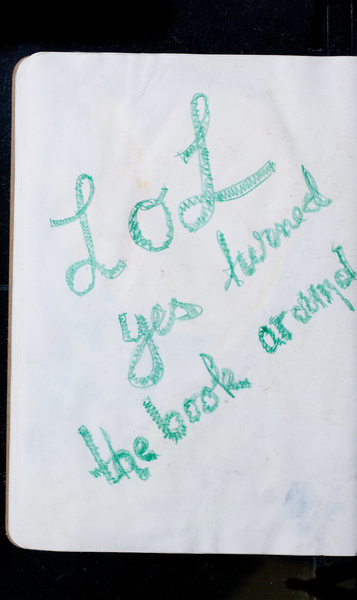 LOL
yes turned
the book around